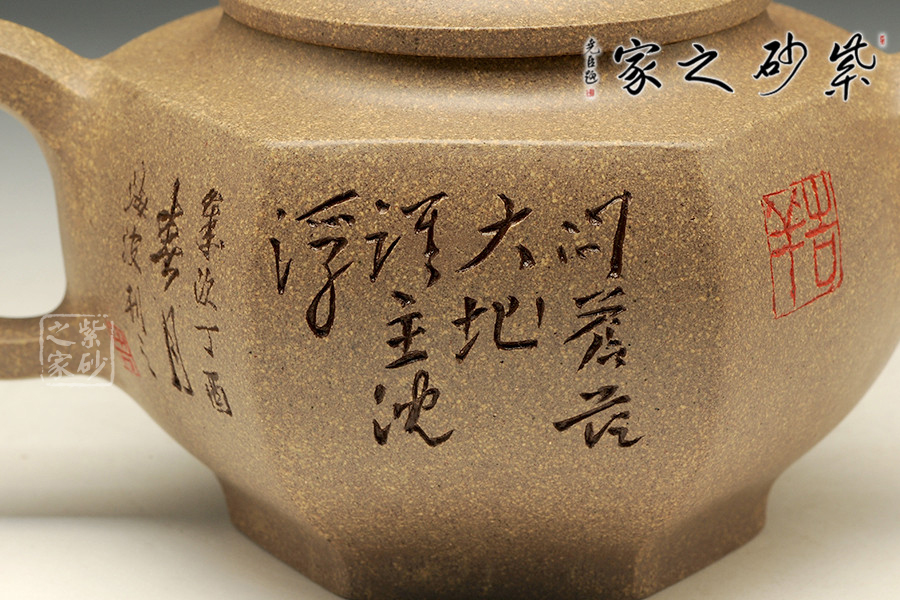 紫砂之家
问苍茫
大地
谁主沈
浮
岁次丁酉
春月
紫砂
之家